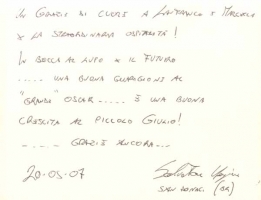 UN GRAZIE DI CUORE A LANFRANCO E MARCELLA
X LA STRAORDINARIA OSPITALITÀ!
IN BOCCA AL LUPO X IL FUTURO
..... UNA BUONA GUARIGIONE AL
"GRANDE" OSCAR ..... E UNA BUONA
CRESCITA AL PICCOLO GIULIO!
.... GRAZIE ANCORA...
20.05.07
SAN DONAC. (BR)